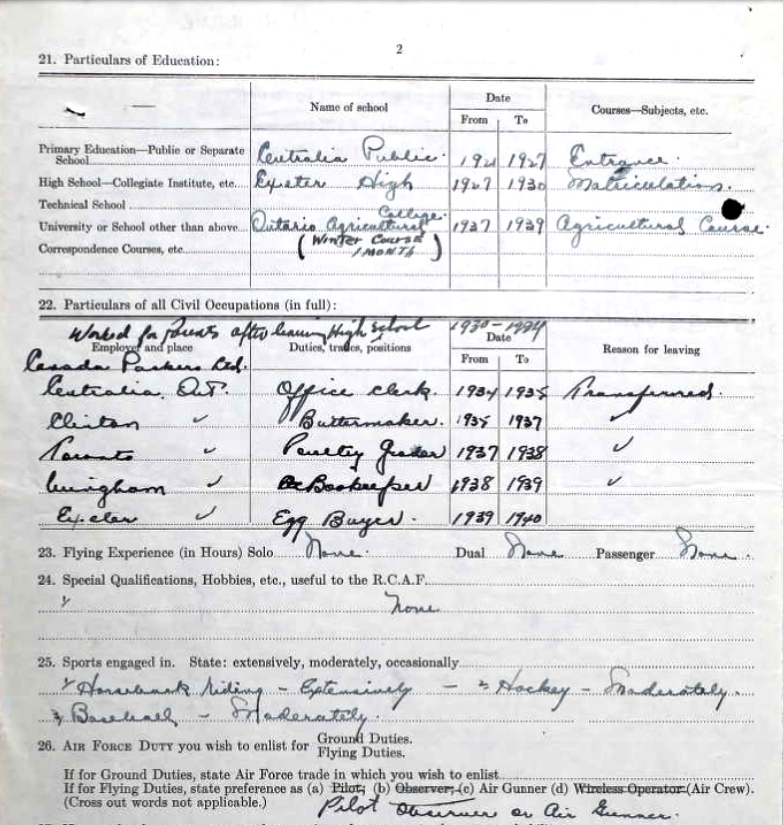 2
21. Particulars of Education:
Name of school Date Courses—Subjects, etc.
From To
Primary Education—Public or Separate School Centralia Public. 1921 1927 Entrance.
High School—Collegiate Institute, etc. Exeter High 1927 1930 Matriculation.
Technical School
University or School other than above Ontario Agricultural College. 1937 1939 Agricultural Course.
Correspondence Courses, etc. (Winter Course 1 MONTH)
22. Particulars of all Civil Occupations (in full):
Worked for Parents after leaving High School 1930-1934
Employer and place Duties, trades, positions Date Reason for leaving
From To
Canada Packers Ltd.
Centralia, Ont. Office Clerk. 1934 1935 Transferred.
Clinton " Buttermaker. 1935 1937 "
Toronto " Poultry Grader 1937 1938 "
" Bookeeper 1938 1939 "
Exeter " Egg Buyer. 1939 1940
23. Flying Experience (in Hours) Solo None. Dual None Passenger None.
24. Special Qualifications, Hobbies, etc., useful to the R.C.A.F.
None
25. Sports engaged in. State: extensively, moderately, occasionally
1/ Horseback riding - Extensively - 2/ Hockey - Moderately.
3/ Baseball - Moderately.
26. AIR FORCE DUTY you wish to enlist for Ground Duties. Flying Duties.
If for Ground Duties, state Air Force trade in which you wish to enlist
If for Flying Duties, state preference as (a) Pilot; (b) Observer; (c) Air Gunner (d) Wireless Operator (Air Crew).
(Cross out words not applicable.) Pilot Observer or Air Gunner.